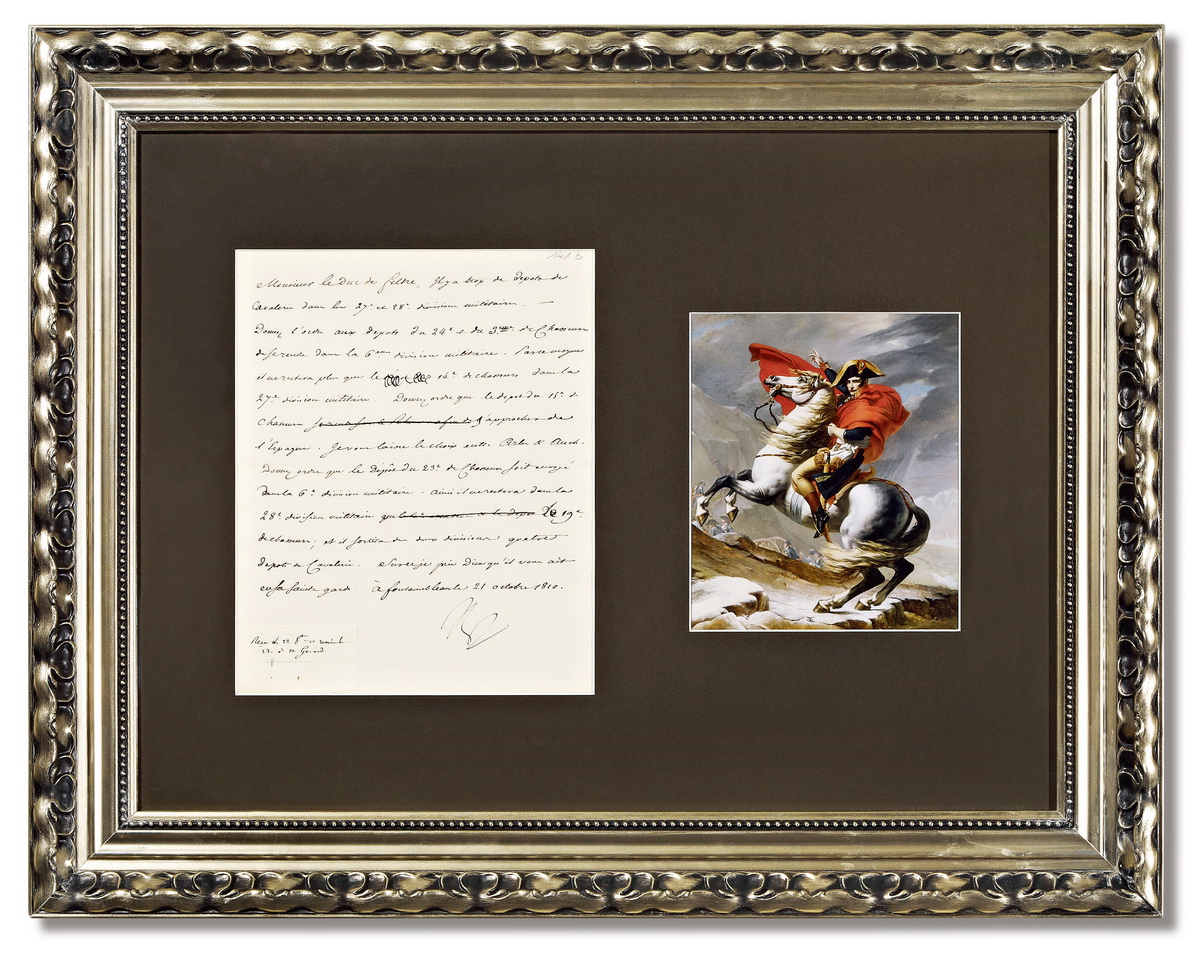 141 B
Monsieur le Duc de feltre, Il y a trop de depots de
Cavalerie dans les 27e et 28e division militaire. —
Donnez l'ordre aux depots du 24e et du 3eme de Chasseurs
de se rendre dans la 6eme division militaire. Par ce moyen
il ne restera plus que le 14e de chasseurs dans la
27e division militaire. Donnez ordre que le depot du 15e de
Chasseurs s'approcher de
l'Espagne. Je vous laisse le choix entre Arles et Auch.
Donnez ordre que le Dépôt du 23e de Chasseurs soit envoyé
dans la 6e division militaire. Ainsi il ne restera dans la
28e division militaire que le 19e
de chasseurs, et il sortira de deux divisions quatre
depots de Cavalerie. Sur ce je prie Dieu qu'il vous ait
en sa Sainte garde. à fontainebleau le 21 octobre 1810.
Np
23. à M Gérard.